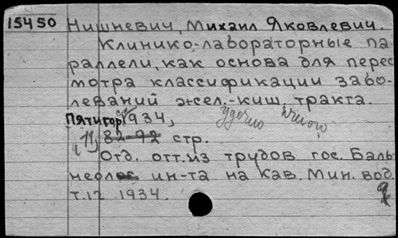 15450 Нишневич, Михаил Яковлевич.
Клинико-лабораторные па
раллели, как основа для перес
мотра классификации забо-
леваний жел.-киш. тракта.
Пятигорск 1934,
11, 82-92 стр.
Отд. отт. из трудов гос. Баль
неолог ин-та на Кав. Мин. вод.
т. 12 1934.